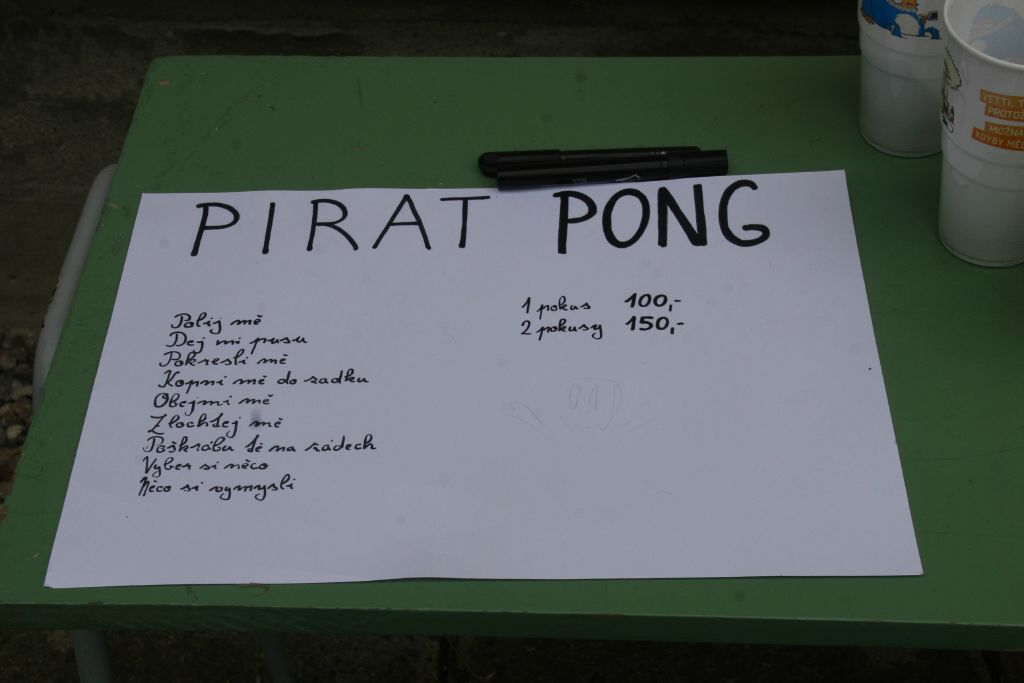 PIRAT PONG
Polij mě
Dej mi pusu
Pokresli mě
Kopni mě do zadku
Obejmi mě
Zlochtej mě
Poškrábu tě na zádech
Vyber si něco
Něco si vymysli
1 pokus 100,-
2 pokusy 150,-
YETTI, T
PROTOŽ
MOŽNÁ
KDYBY MĚL